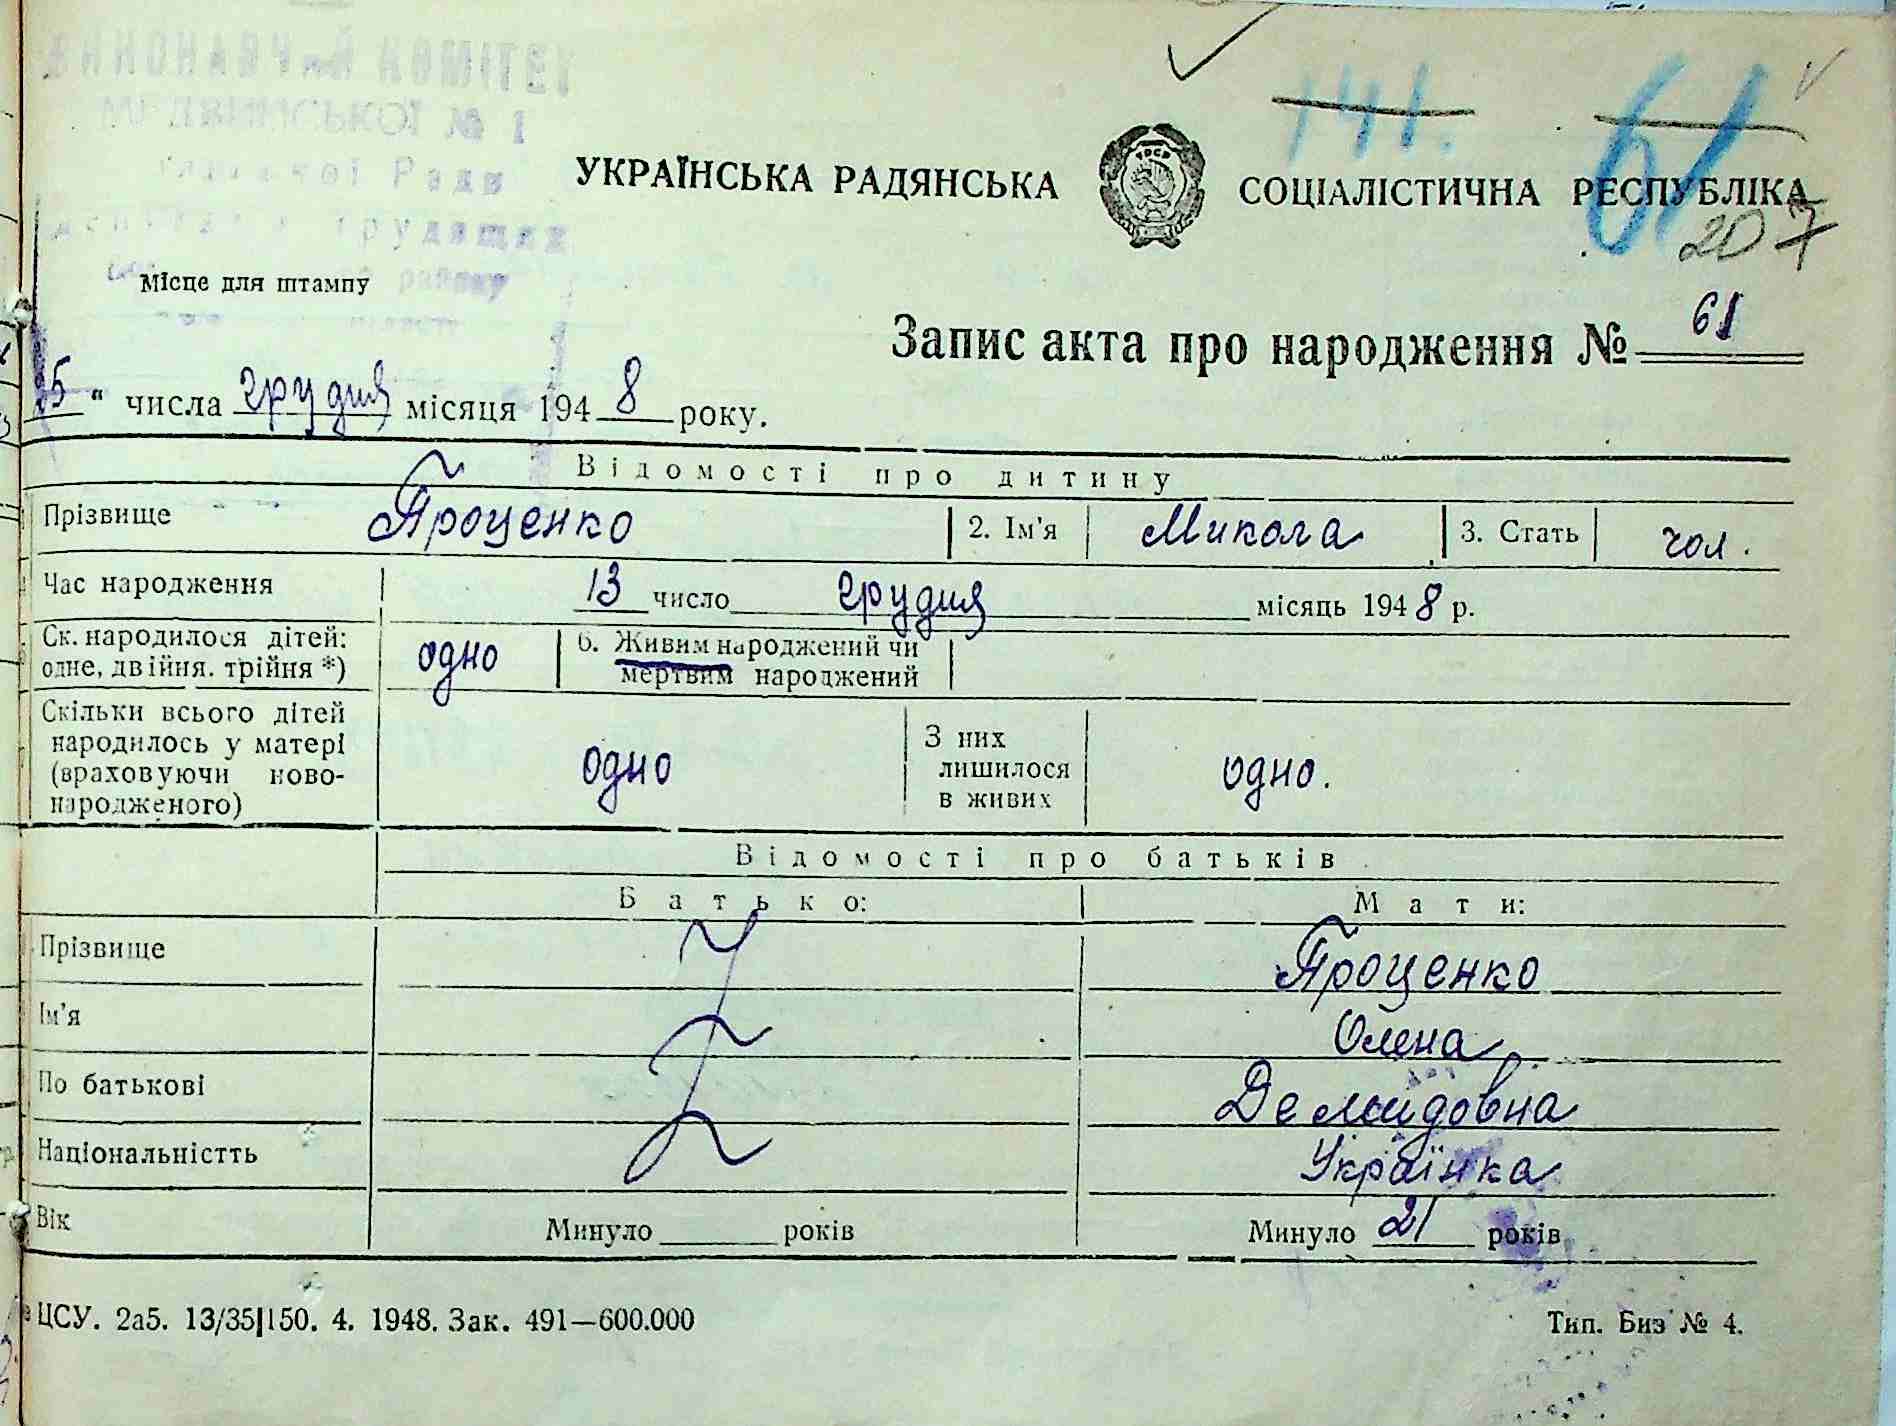 ВИКОНАВЧИЙ КОМІТЕТ
МЕДВИНСЬКОЇ № 1
Ради
депутатів трудящих
району
141. 61
УКРАЇНСЬКА РАДЯНСЬКА СОЦІАЛІСТИЧНА РЕСПУБЛІКА
207
Місце для штампу
Запис акта про народження № 61
"15" числа грудня місяця 1948 року.
Відомості про дитину
Прізвище Проценко 2. Ім'я Микола 3. Стать чол.
Час народження 13 число грудня місяць 1948 р.
Ск. народилося дітей: одно 6. Живим народжений чи
одне, двійня. трійня *) мертвим народжений
Скільки всього дітей
народилось у матері
(враховуючи ново-
народженого) одно З них
лишилося
в живих одно.
Відомості про батьків
Батько: Мати:
Прізвище Проценко
Ім'я Олена
По батькові Демидовна
Національністть Українка
Вік Минуло років Минуло 21 років
ЦСУ. 2а5. 13/35|150. 4. 1948. Зак. 491—600.000 Тип. Биз № 4.